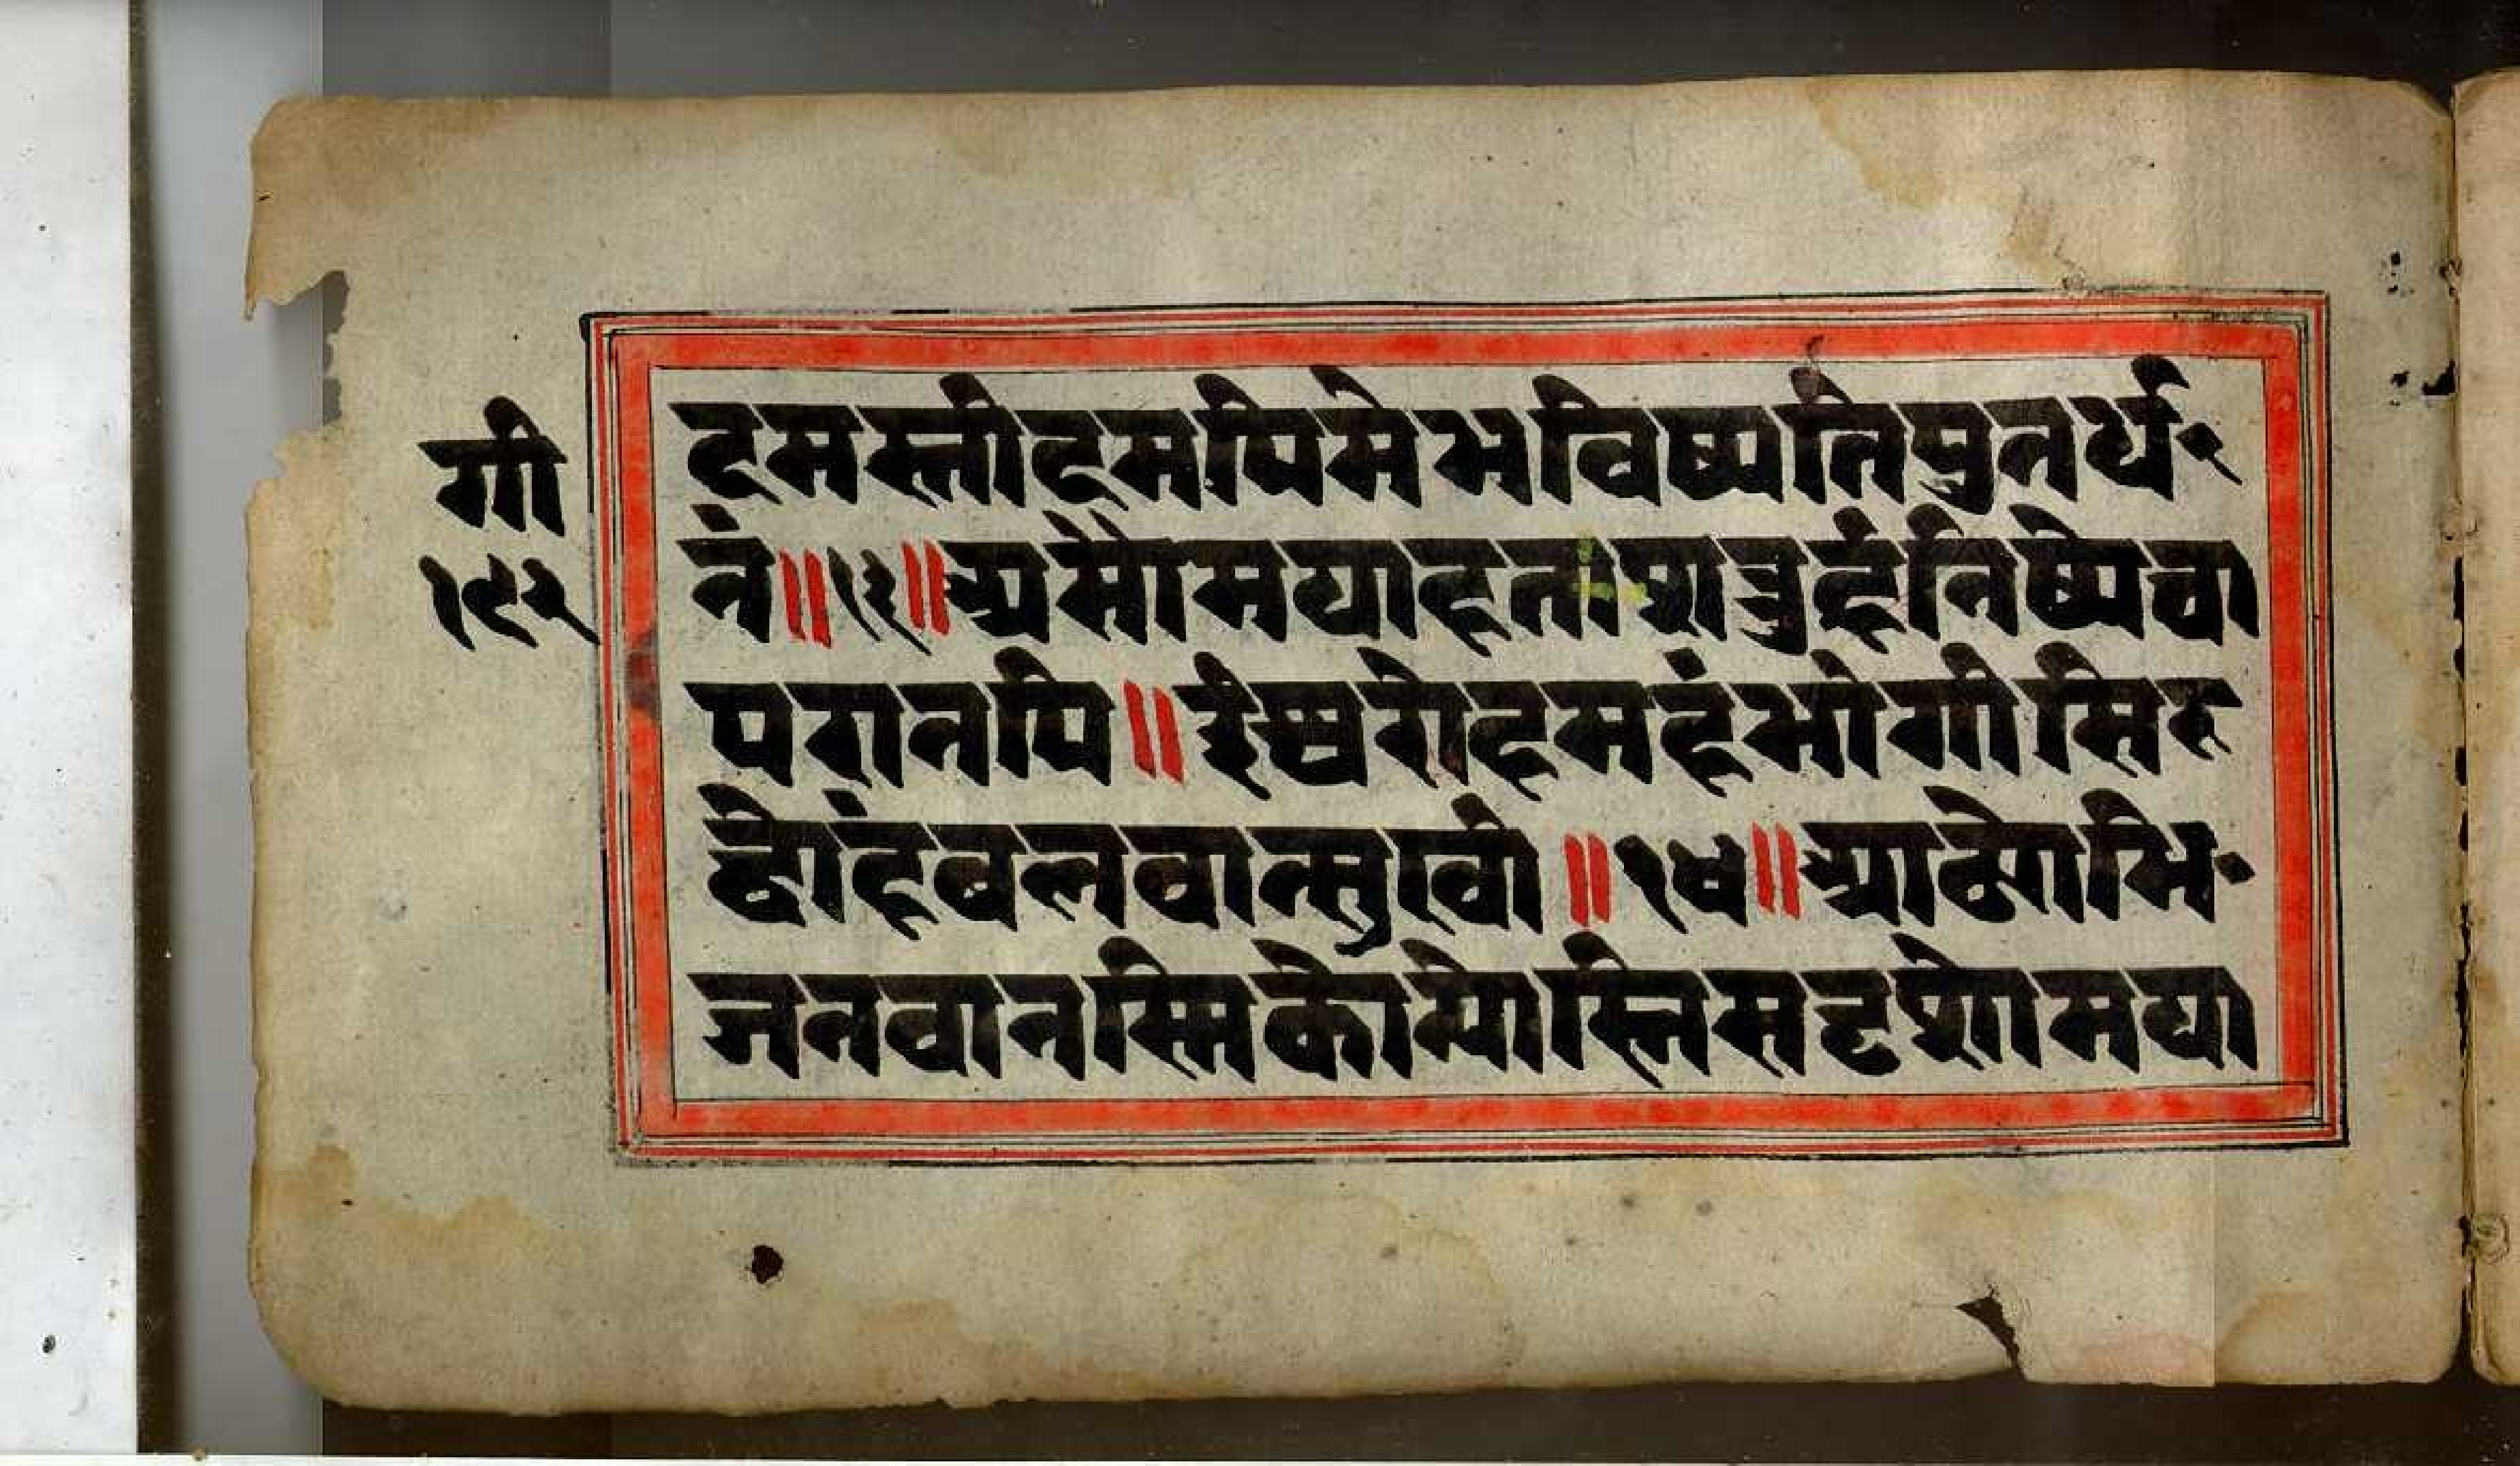 गी
१९२
दमस्तीदमपिमेभविष्यतिपुनर्ध
नं॥१३॥असौमयाहतःशत्रुर्हनिष्येचा
परानपि॥ईश्वरोहमहंभोगीसिद्
द्धोहंबलवान्सुखी॥१४॥आढ्योभि
जनवानस्मिकोन्योस्तिसदृशोमया